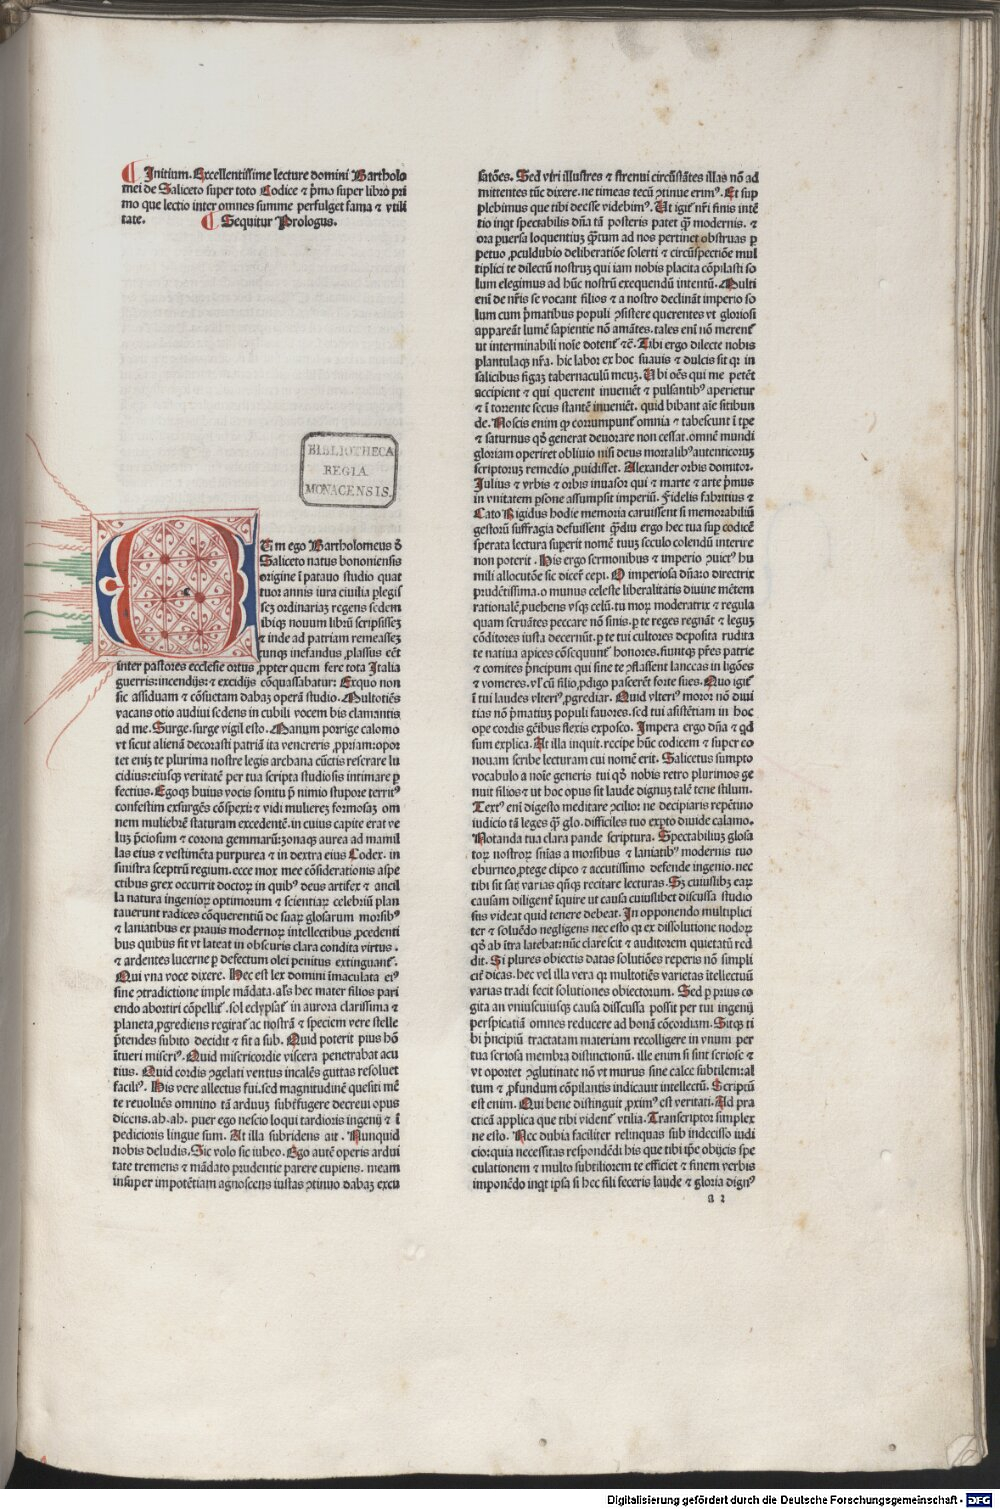 ¶ Initium. Excellentissime lecture domini Bartholo
mei de Saliceto super toto Codice ⁊ p̄mo super libro pri
mo que lectio inter omnes summe perfulget fama ⁊ vtili
tate. ¶ Sequitur Prologus.
BIBLIOTHECA
REGIA
MONACENSIS.
Um ego Bartholomeus d̄
Saliceto natus bononiensis
origine ī patauo studio quat
tuor annis iura ciuilia plegis
seꝫ ordinariaꝫ regens sedem
ibiqꝫ nouum librū scripsisseꝫ
⁊ inde ad patriam remeasseꝫ
tuncqꝫ inefandus ꝓlapsus cēt
inter pastores ecclesie ortus ꝓpter quem fere tota Italia
guerris: incendijs: ⁊ excidijs cōquassabatur: Exquo non
sic assiduam ⁊ cōsuetam dabaꝫ operā studio. Multotiēs
vacans otio audiui sedens in cubili vocem bis clamantis
ad me. Surge. surge vigil esto. Manum porrige calamo
vt sicut alienā decorasti patriā ita venereris ꝓpriam: opor
tet eniꝫ te plurima nostre legis archana cūctis reserare lu
cidius: eiusqꝫ veritatē per tua scripta studiosis intimare ꝑ
fectius. Egoqꝫ huius vocis sonitu p̄ nimio stupore territꝰ
confestim exsurgēs cōspexi: ⁊ vidi muliereꝫ formosaꝫ om
nem muliebrē staturam excedentē. in cuius capite erat ve
luꝫ p̄ciosum ⁊ corona gemmarū: zonaqꝫ aurea ad mamil
las eius ⁊ vestimēta purpurea ⁊ in dextra eius Codex. in
sinistra sceptrū regium. ecce mox mee cōsiderationis aspe
ctibus grex occurrit doctoꝝ in quibꝰ deus artifex ⁊ ancil
la natura ingenioꝝ optimorum ⁊ scientiaꝝ celebriū plan
tauerunt radices cōquerentiū de suaꝝ glosarum morsibꝰ
⁊ laniatibus ex prauis modernoꝝ intellectibus ꝓcedenti
bus quibus fit vt lateat in obscuris clara condita virtus.
⁊ ardentes lucerne ꝑ defectum olei penitus extinguant̄.
Qui vna voce dixere. Hec est lex domini īmaculata eiꝰ
sine ꝯtradictione imple mādata. als̄ hec mater filios pari
endo abortiri cōpellit̄. sol eclypsat̄ in aurora clarissima ⁊
planeta ꝓgrediens regirat̄ ac nostrā ⁊ speciem vere stelle
p̄tendes subito decidit ⁊ fit a sub. Quid poterit pius hō
ītueri miseriꝰ. Quid misericordie viscera penetrabat acu
tius. Quid cordis ꝯgelati ventus incalēs guttas resoluet
faciliꝰ. His vere allectus fui. sed magnitudinē quesiti mē
te reuoluēs omnino tā arduuꝫ subterfugere decreui opus
dicens. ah. ah. puer ego nescio loqui tardioris ingenij ⁊ ī
pedicioris lingue sum. At illa subridens ait. Nunquid
nobis deludis. Sic volo sic iubeo. Ego autē operis ardui
tate tremens ⁊ mādato prudentie parere cupiens. meam
insuper impotētiam agnoscens iustas ꝯtinuo dabaꝫ excu
satōes. Sed viri illustres ⁊ strenui circūstātes illas nō ad
mittentes tūc dixere. ne timeas tecū ꝯtinue erimꝰ. Et sup
plebimus que tibi deesse videbimꝰ. Ut igit̄ nr̄i finis intē
tio inqt spectabilis dn̄a tā posteris patet qꝫ modernis. ⁊
ora puersa loquentiuꝫ qꝫtum ad nos pertinet obstruas ꝑ
petuo ꝓculdubio deliberatiōe solerti ⁊ circūspectiōe mul
tiplici te dilectū nostruꝫ qui iam nobis placita cōpilasti so
lum elegimus ad hūc nostrū exequendū intentū. Multi
eni̅ de nr̄is se vocant filios ⁊ a nostro declināt imperio so
lum cum p̄matibus populi ꝯsistere querentes vt gloriosi
appareāt lumē sapientie nō amātes. tales eni̅ nō merent̄
ut interminabili noi̅e dotent̄ ⁊c̄. Tibi ergo dilecte nobis
plantulaqꝫ nr̄a. hic labor ex hoc suauis ⁊ dulcis sit qꝛ in
salicibus figaꝫ tabernaculū meuꝫ. Ubi oēs qui me petēt
accipient ⁊ qui querent inueniēt ⁊ pulsantibꝰ aperietur
⁊ ī torrente secus stantē inueniēt. quid bibant aīe sitibun
de. Noscis enim ꝙ corrumpunt̄ omnia ⁊ tabescunt ī tpe
⁊ saturnus qd̄ generat deuorare non cessat. omnē mundi
gloriam operiret obliuio nisi deus mortalibꝰ autenticoruꝫ
scriptoruꝫ remedio ꝓuidisset. Alexander orbis domitor.
Julius ⁊ vrbis ⁊ orbis inuasor qui ⁊ marte ⁊ arte p̄mus
in vnitatem psone assumpsit imperiū. Fidelis fabritius ⁊
Cato Rigidus hodie memoria caruissent si memorabiliū
gestorū suffragia defuissent qꝫdiu ergo hec tua sup codicē
sperata lectura superit nomē tuuꝫ seculo colendū interire
non poterit. His ergo sermonibus ⁊ imperio ꝯuictꝰ hu
mili allocutōe sic dicer̄ cepi. O imperiosa dn̄aꝝ directrix
prudētissima. o munus celeste liberalitatis diuine mētem
rationalē ꝓuehens vsqꝫ celū. tu moꝝ moderatrix ⁊ regula
quam seruātes peccare nō sinis. ꝑ te reges regnāt ⁊ leguꝫ
cōditores iusta decernūt. ꝑ te tui cultores deposita rudita
te natiua apices cōsequunt̄ honores. fiuntqꝫ pr̄es patrie
⁊ comites p̄ncipum qui sine te ꝯflassent lanceas in ligōes
⁊ vomeres. vl̄ cū filio ꝓdigo pascerēt forte sues. Quo igit̄
ī tui laudes vlteriꝰ ꝓgrediar. Quid vlteriꝰ moror nō diui
tias nō p̄matiuꝫ populi fauores. sed tui asistētiam in hoc
ope cordis gēibus flexis exposco. Impera ergo dn̄a ⁊ qd
sum explica. At illa inquit. recipe hūc codicem ⁊ super eo
nouam scribe lecturam cui nomē erit. Salicetus sumpto
vocabulo a noi̅e generis tui qd̄ nobis retro plurimos ge
nuit filios ⁊ ut hoc opus sit laude dignuꝫ talē tene stilum.
Textꝰ eni̅ digesto meditare ꝯcilio: ne decipiaris repētino
iudicio tā leges qꝫ glo. difficiles tuo exꝑto diuide calamo.
Notanda tua clara pande scriptura. Spectabiliuꝫ glosa
toꝝ nostroꝝ sn̄ias a morsibus ⁊ laniatibꝰ modernis tuo
eburneo ꝓtege clipeo ⁊ accutissimo defende ingenio. nec
tibi sit sat̄ varias qn̄qꝫ recitare lecturas. Sꝫ cuiuslibꝫ eaꝝ
causam diligent̄ īquire ut causa cuiuslibet discussa studio
sus videat quid tenere debeat. In opponendo multiplici
ter ⁊ soluēdo negligens nec esto qꝛ ex dissolutione nodoꝝ
qd̄ ab ītra latebat: nūc clarescit ⁊ auditorem quietatū red
dit. Si plures obiectis datas solutiōes reperis nō simpli
cit̄ dicas. hec vel illa vera qꝛ multotiēs varietas ītellectuū
varias tradi fecit solutiones obiectorum. Sed ꝑ prius co
gita an vniuscuiusqꝫ causa disscussa possit per tui ingenij
perspicatiā omnes reducere ad bonā cōcordiam. Sitqꝫ ti
bi p̄ncipiū tractatam materiam recolligere in vnum per
tua seriosa membra distinctionū. ille enim si sint seriose ⁊
vt oportet ꝯglutinate nō vt murus sine calce subtilem: al
tum ⁊ ꝓfundum cōpilantis indicauit intellectū. Scriptū
est enim. Qui bene distinguit ꝓximꝰ est veritati. Ad pra
cticā applica que tibi vident̄ vtilia. Transcriptor simplex
ne esto. Nec dubia faciliter relinquas sub indecisso iudi
cio: quia necessitas respondēdi his que tibi ip̄e obijcis spe
culationem ⁊ multo subtiliorem te efficiet ⁊ finem verbis
imponēdo inqt ipsa si hec fili feceris laude ⁊ gloria dignꝰ
a 2
Digitalisierung gefördert durch die Deutsche Forschungsgemeinschaft - DFG